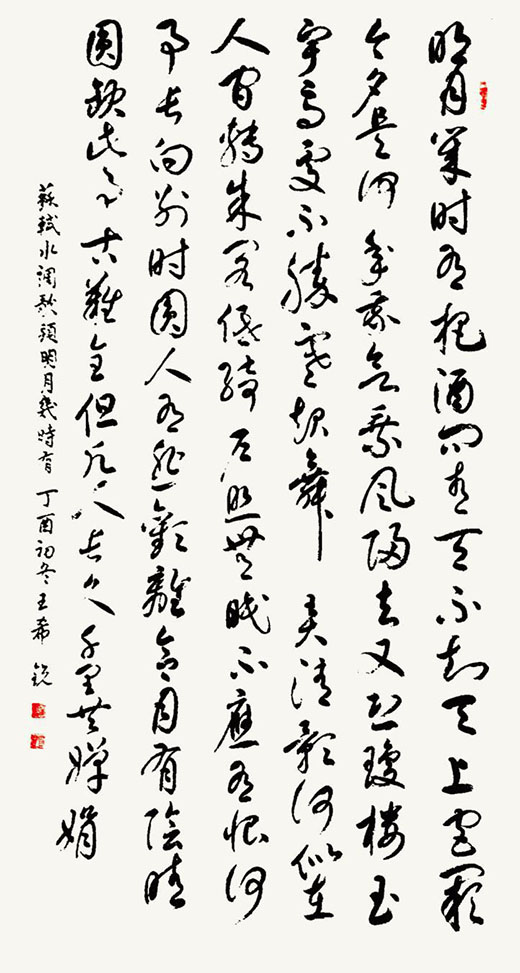 明月幾时有把酒问青天不知天上宫阙
今夕是何年我欲乘风归去又恐瓊楼玉
宇高处不勝寒起舞弄清影何似在
人间轉朱阁低绮户照無眠不應有恨何
事长向别时圆人有悲歡離合月有陰晴
圆缺此事古難全但愿人长久千里共嬋娟
蘇軾水调歌頭明月幾時有 丁酉初冬王希鋭